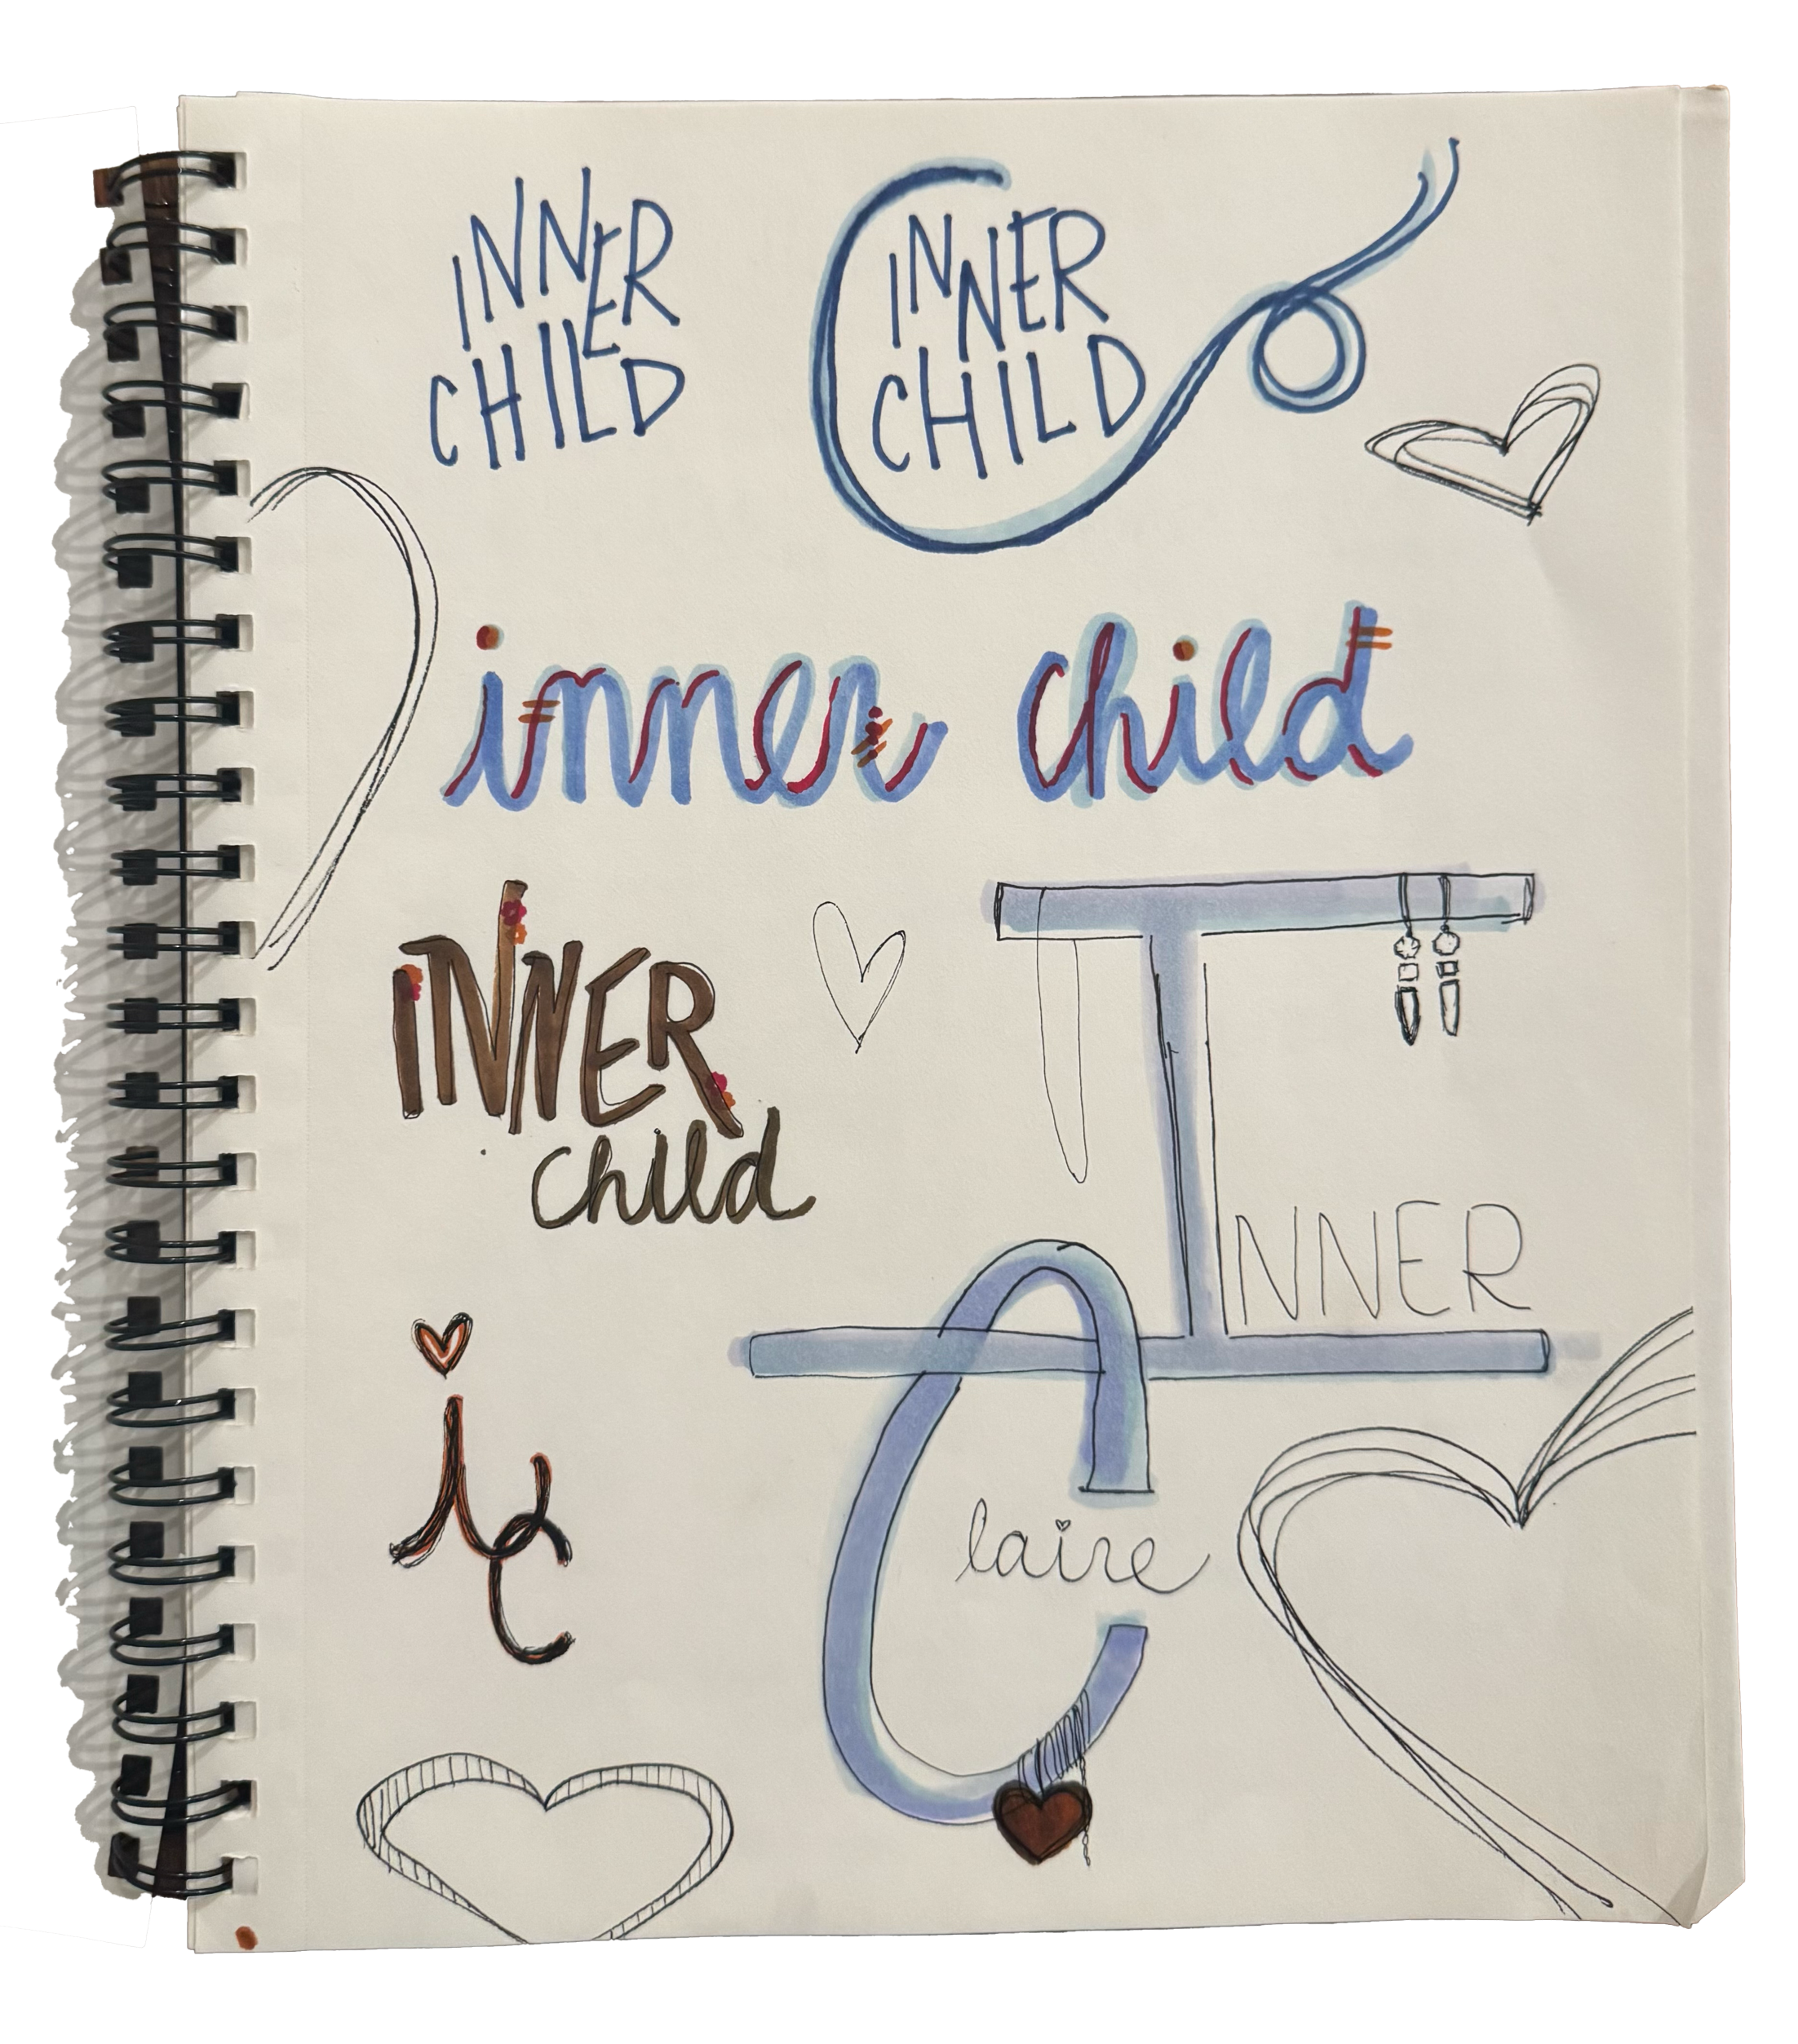 INNER
CHILD
INNER
CHILD
inner child
INNER
child
INNER
Claire
ic